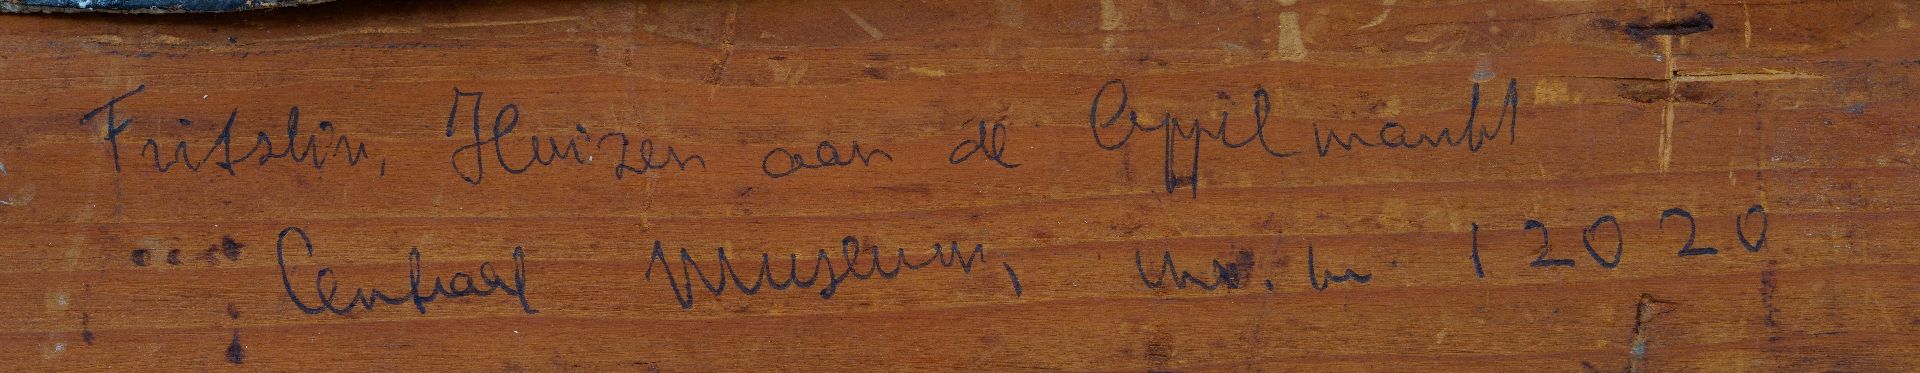 Fritzlin, Huizen aan de Appelmarkt
Centraal Museum, inv. nr. 12020